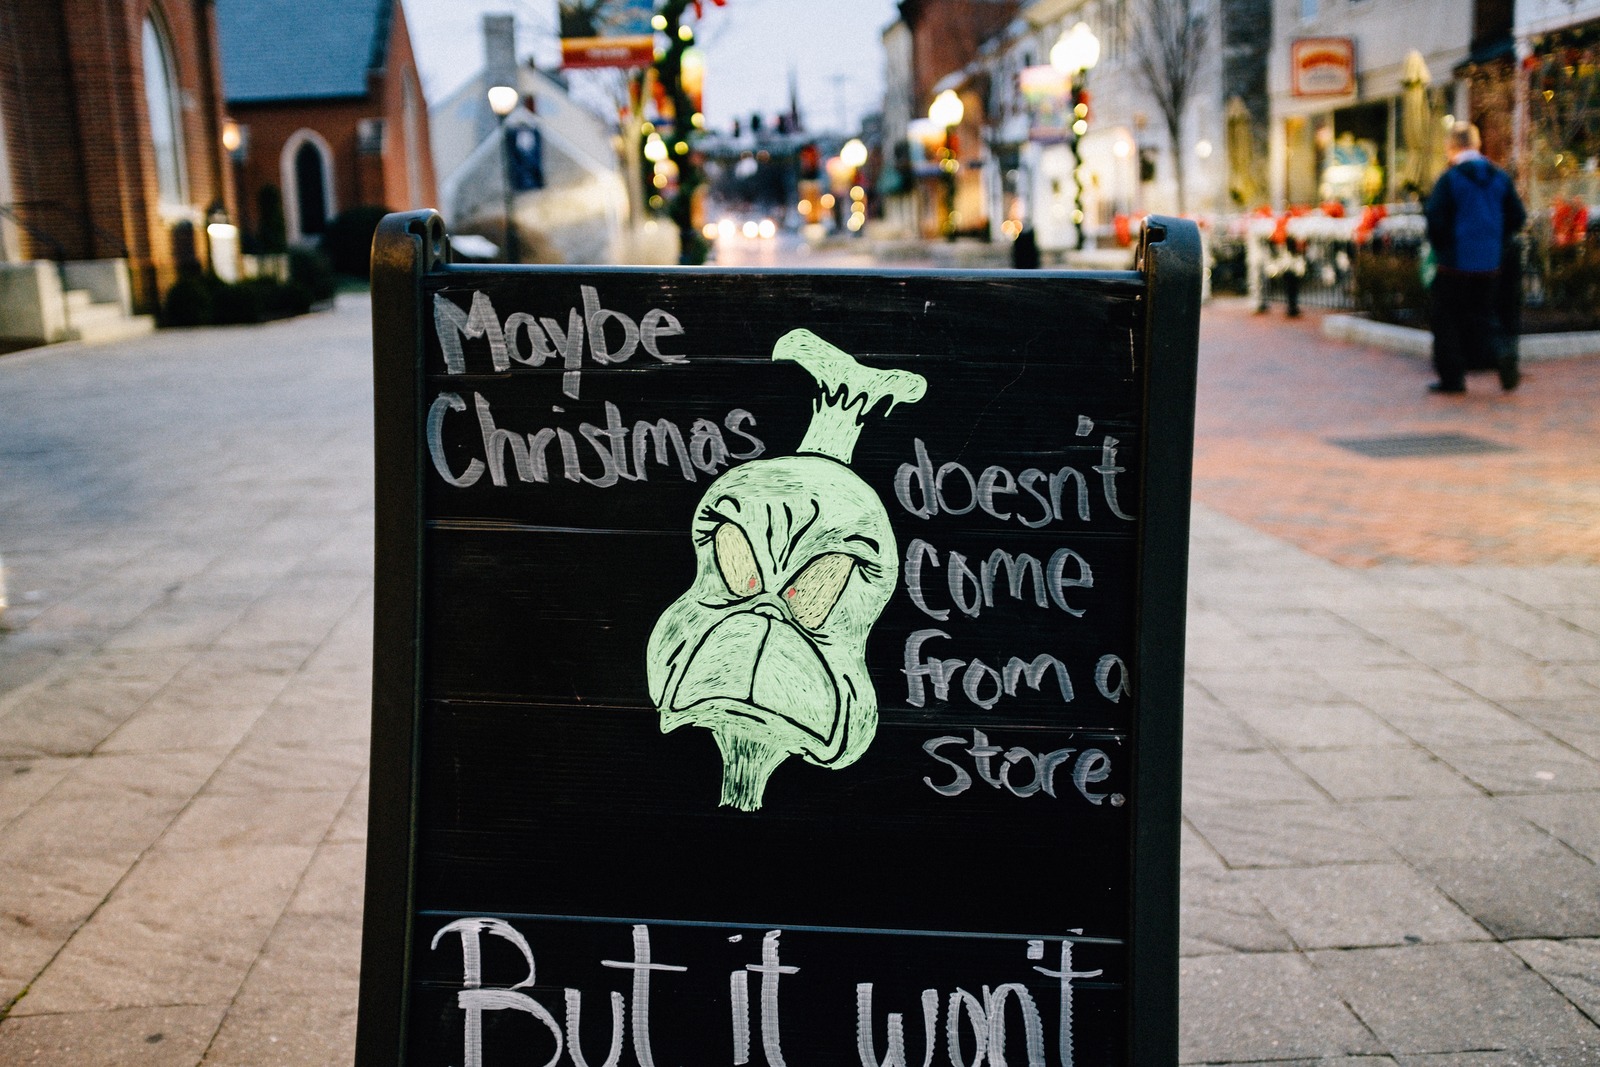 Maybe
Christmas
doesn't
come
from a
store.
But it won't